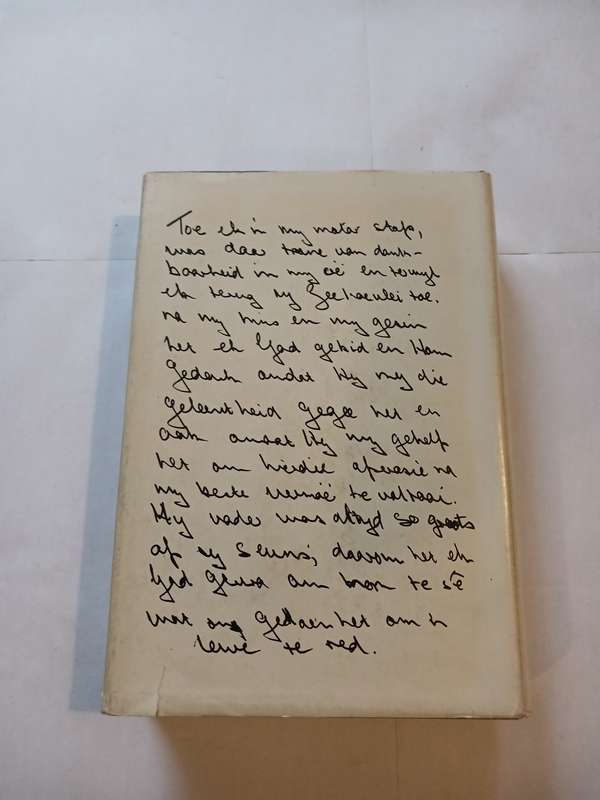 Toe ek in my motor stap,
was daar trane van dank-
baarheid in my oë en terwyl
ek terug ry Zeekoevlei toe,
na my huis en my gesin
het ek God gebid en Hom
gedank omdat Hy my die
geleentheid gegee het en
ook omdat Hy my gehelp
het om hierdie operasie na
my beste vermoë te voltooi.
My vader was altyd so groots
op sy seuns; daarom het ek
God gevra om hom te sê
wat ons gedoen het om 'n
lewe te red.